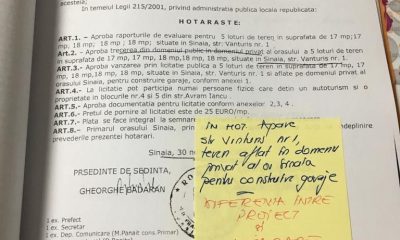 acesteia;
In temeiul Legii 215/2001, privind administratia publica locala republicata:
HOTARASTE:
ART.1. – Aproba raporturile de evaluare pentru 5 loturi de teren in suprafata de 17 mp;17
mp, 18 mp; 18 mp ; 18 mp; situate in Sinaia, str. Vanturis nr. 1
ART.2. – Aproba trecerea din domeniul public in domeniul privat al orasului a 5 loturi de teren
in suprafata de 17 mp, 17 mp, 18 mp, 18 mp, 18 mp, situate in Sinaia, str. Vanturis nr. 1
ART.3.- Aproba vanzarea prin licitatie publica a 5 loturi de teren in suprafata de 17 mp, 17
mp, 18 mp,18 mp, 18 mp, situate in Sinaia, str. Vanturis nr. 1 si aflate pe domeniul privat al
orasului Sinaia, pentru construire garaje, conform anexei 1.
ART.4. - La licitatie pot participa numai persoane fizice care detin un autoturism si o
proprietate in blocurile nr.4 si 5 din str.Avram Iancu .
ART.5.- Aproba documentatia pentru licitatie conform anexelor 2,3, 4 .
ART.6.- Pretul de pornire al licitatiei este de 25 EURO/mp.
ART.7.- Plata se face integral la semnare
ART.8.- Primarul orasului Sinaia, prin
indeplinire
prevederile prezentei hotarari.
Sinaia, 30 no
PRSEDINTE DE SEDINTA,
GHEORGHE BADARAN
RO
1 ex. Prefect
1 ex. Secretar
1 ex. Dep. Comunicare (M.Panait cons.Primar)
IN HOT. Apare
str Vinturis nr 1,
teren aflat in domeniu
privat al or Sinaia
pentru construire garaje
DIFERENTA INTRE
PROIECT
si